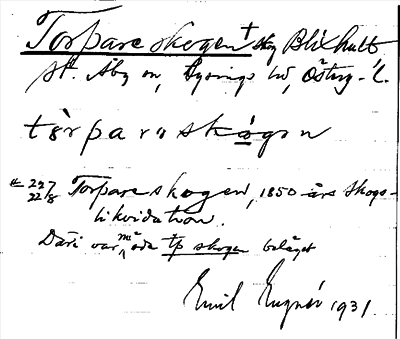 Torpareskogen + skg Blixhult
St. Åby sn, Lysings hd, Östg. l.
tòrparaskógen
Torpareskogen, 1850 års Skogs-
likvidation.
Däri var må öda tp skogen beläget
Emil 1931.